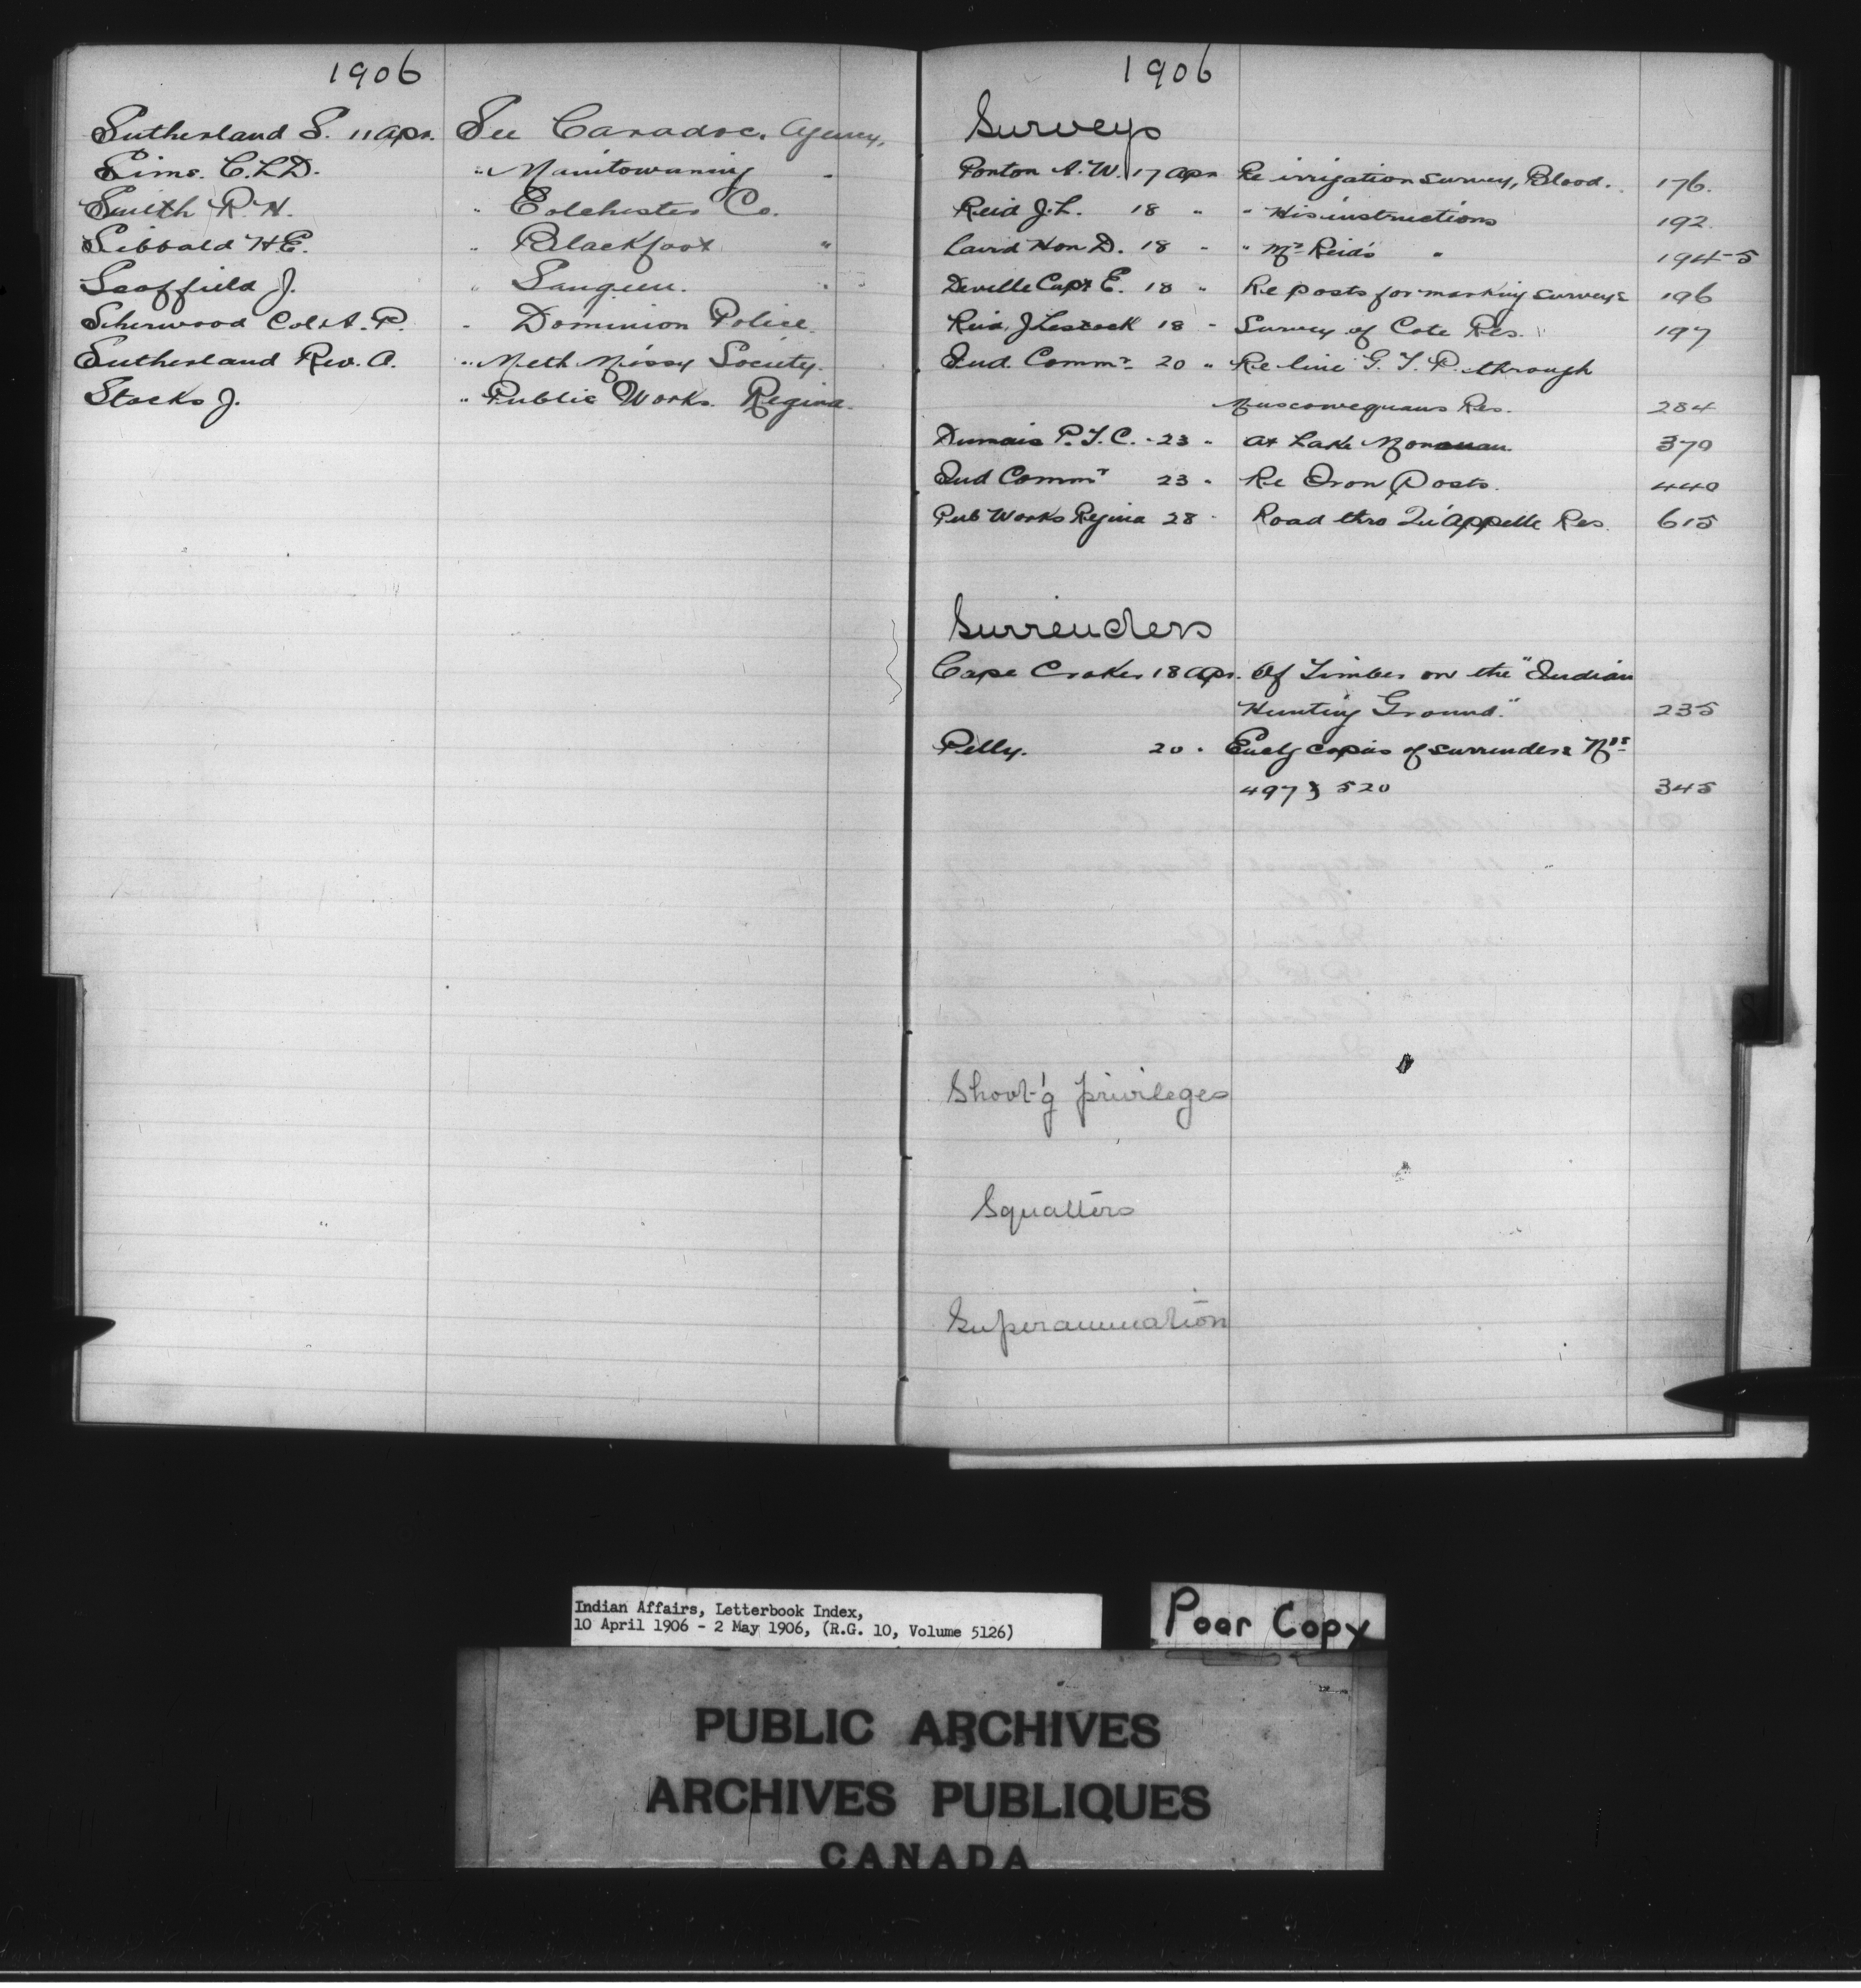 1906
Sutherland S. 11 Apr. See Caradoc. Agency.
Sims. C.L.D. " Manitowaning "
Smith R.H. " Colchester Co.
Sibbald H.E. " Blackfoot "
Scoffield J. " Saugeen. "
Sherwood Col. A. P. " Dominion Police.
Sutherland Rev. A. " Meth Missy Society.
Stocks J. " Public Works. Regina.
1906
Surveys
Ponton A. W. 17 Apr Re irrigation survey, Blood. 176.
Reid J. L. 18 " " His instructions 192
Laird Hon D. 18 " " Mr Reid's " 194-5
Deville Capt E. 18 " Re posts for marking surveys 196
Reid, J Lestock 18 " Survey of Cote Res. 197
Ind. Commr 20 " Re line G. T. P. through
Muscowequans Res. 284
Dumais P. T. C. 23 " At Lake Manouan 370
Ind Commr 23 " Re Iron Posts. 440
Pub Works Regina 28 " Road thro Qu'Appelle Res. 615
Surrenders
Cape Croker 18 Apr. Of Timber on the "Indian
Hunting Ground." 235
Pelly. 20 " Encl'g copies of surrenders Nos
497 & 520 345
Shoot'g privileges
Squatters
Superannuation
Indian Affairs, Letterbook Index,
10 April 1906 - 2 May 1906, (R.G. 10, Volume 5126)
Poor Copy
PUBLIC ARCHIVES
ARCHIVES PUBLIQUES
CANADA